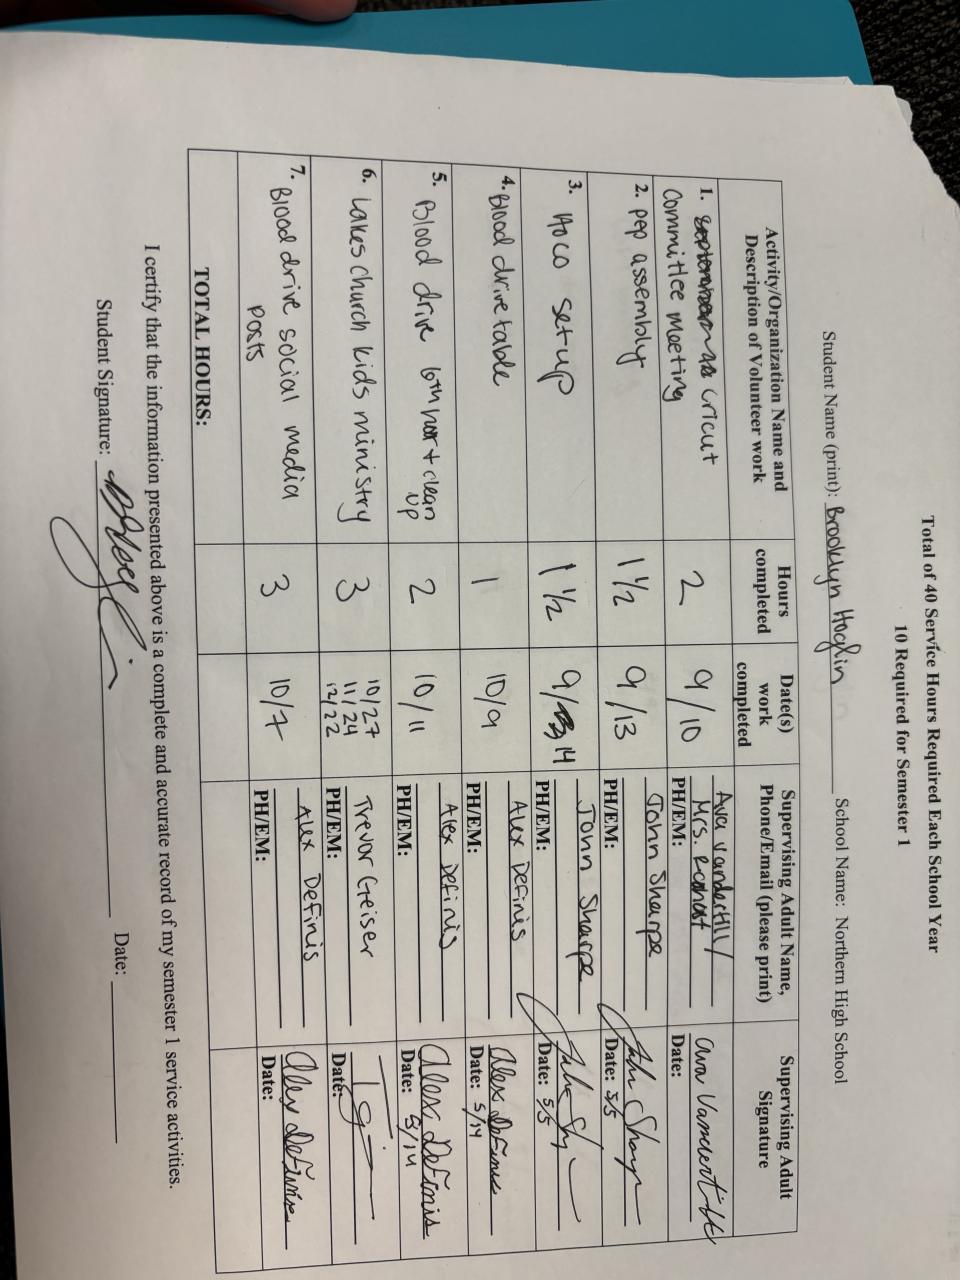 Total of 40 Service Hours Required Each School Year
10 Required for Semester 1
Student Name (print): Brooklyn Hoglin School Name: Northern High School
Activity/Organization Name and
Description of Volunteer work
Hours
completed
Date(s)
work
completed
Supervising Adult Name,
Phone/Email (please print)
Supervising Adult
Signature
1. cricut
committee meeting
2
9/10
Ava Vanderstill/
Mrs.
PH/EM:
Date:
2. pep assembly
1 1/2
9/13
John Sharpe
PH/EM:
Date: 5/5
3. HOCO setup
1 1/2
9/14
John Sharpe
PH/EM:
Date: 5/5
4. Blood drive table
1
10/9
Alex Definis
PH/EM:
Alex Definis
Date: 5/14
5. Blood drive 6th hour + clean
up
2
10/11
Alex Definis
PH/EM:
Alex Definis
Date: 5/14
6. Lakes church kids ministry
3
10/27
11/24
12/22
Trevor Geiser
PH/EM:
Date:
7. Blood drive social media
posts
3
10/7
Alex Definis
PH/EM:
Alex Definis
Date:
TOTAL HOURS:
I certify that the information presented above is a complete and accurate record of my semester 1 service activities.
Student Signature: Date: